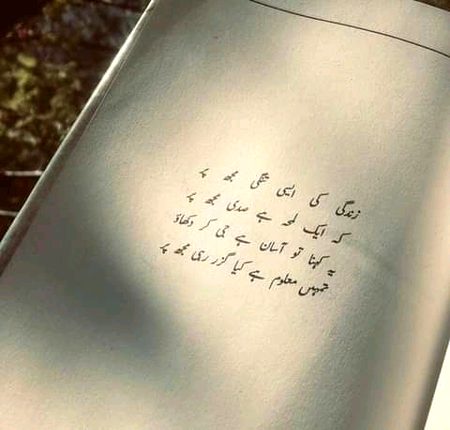 زندگی کی ایسی تنگی مجھ پہ
کہ ایک لمحہ ہے صدی مجھ پہ
یہ کہنا تو آسان ہے جی کر دکھاؤ
تمہیں معلوم ہے کیا گزر رہی مجھ پہ